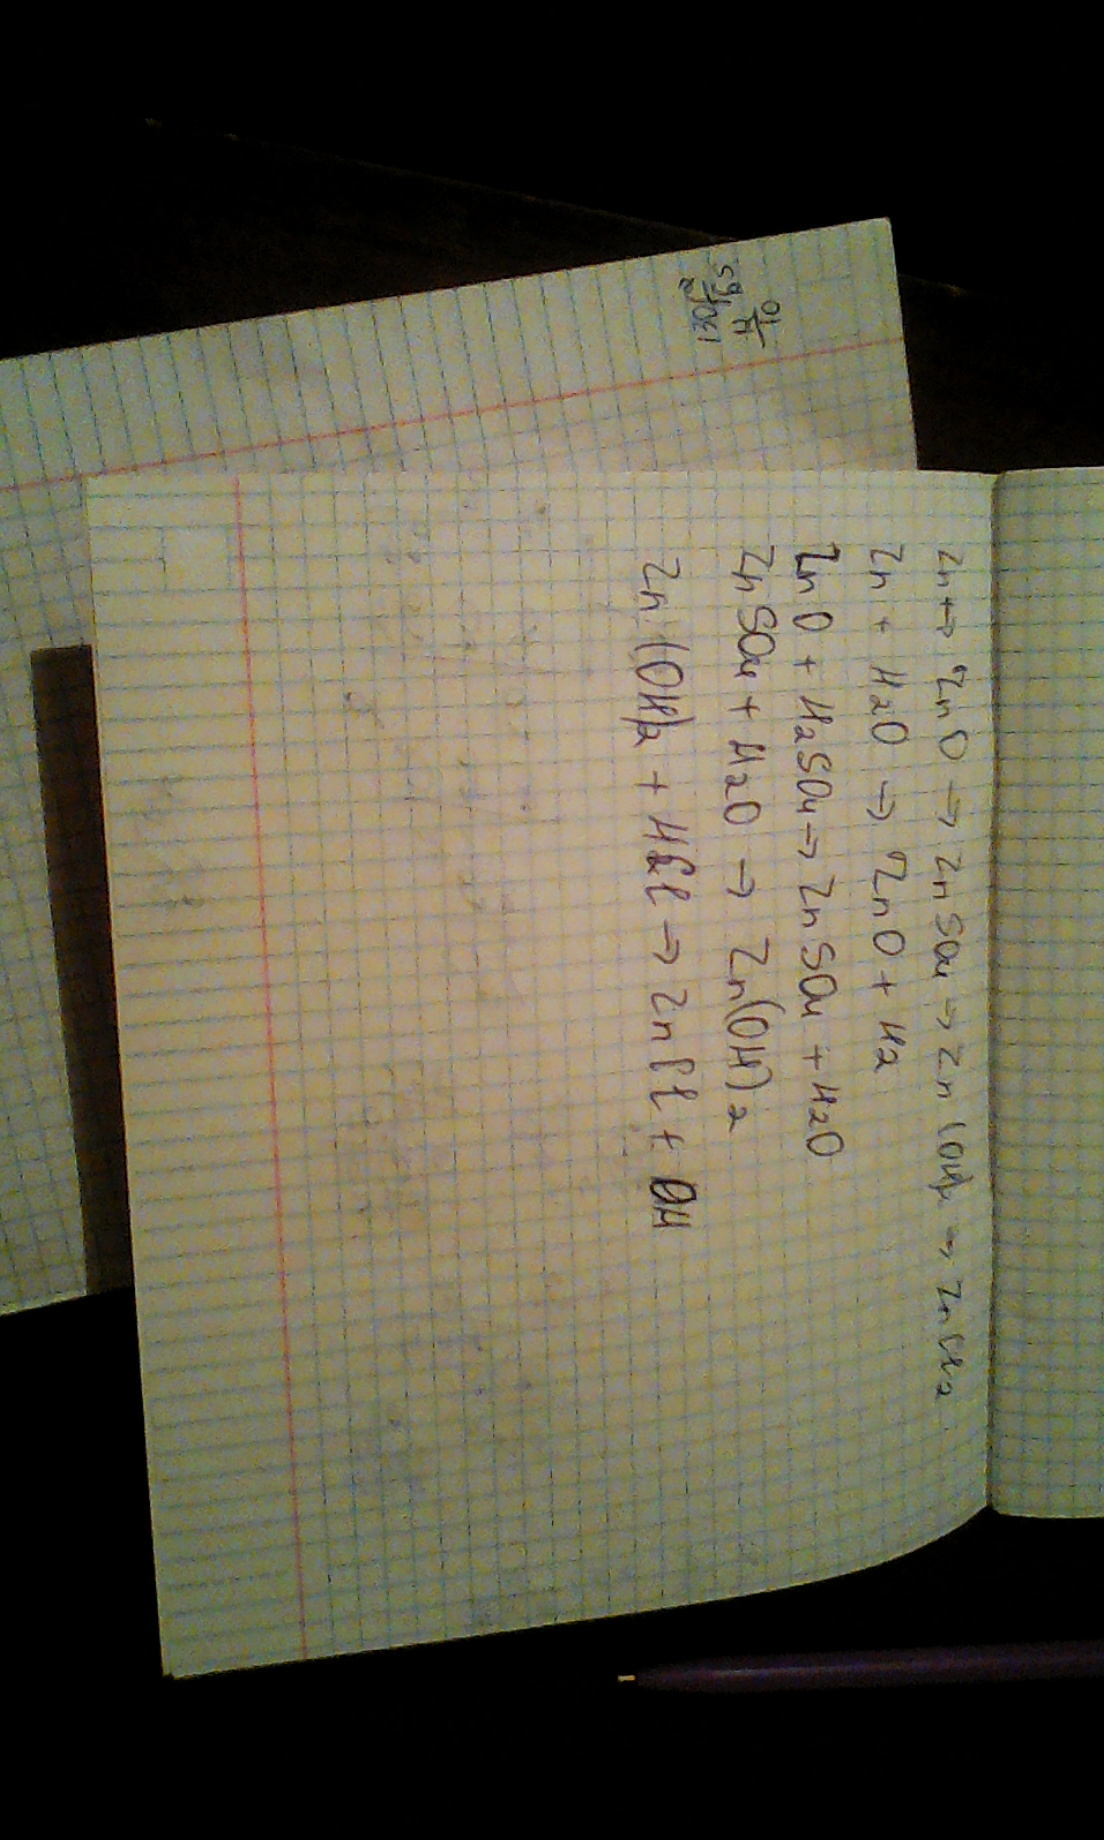 Zn → ZnO → ZnSO4 → Zn(OH)2 → ZnCl2
Zn + H2O → ZnO + H2
ZnO + H2SO4 → ZnSO4 + H2O
ZnSO4 + H2O → Zn(OH)2
Zn(OH)2 + HCl → ZnCl + OH